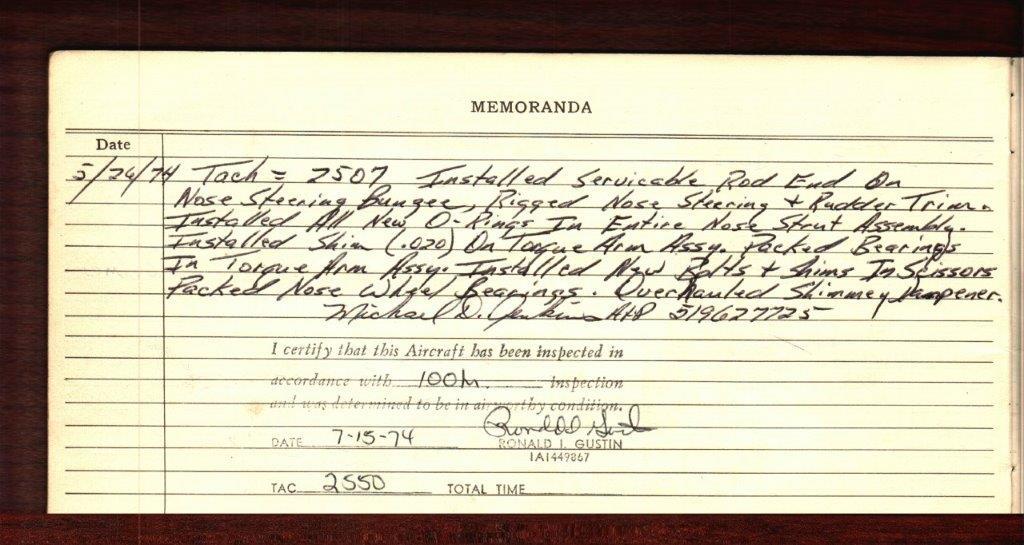 MEMORANDA
Date
5/26/74 Tach = 2507 Installed Servicable Rod End On
Nose Steering Bungee, Rigged Nose Steering + Rudder Trim.
Installed All New O-Rings In Entire Nose Strut Assembly.
Installed Shim (.020) On Torque Arm Assy. Packed Bearings
In Torque Arm Assy. Installed New Bolts + Shims In Scissors
Packed Nose Wheel Bearings. Overhauled Shimmey Dampener.
Michael D. Jenkins A+P 519627725
I certify that this Aircraft has been inspected in
accordance with 100h. Inspection
and was determined to be in airworthy condition.
DATE 7-15-74 RONALD I. GUSTIN
1A1449867
TAC 2550 TOTAL TIME